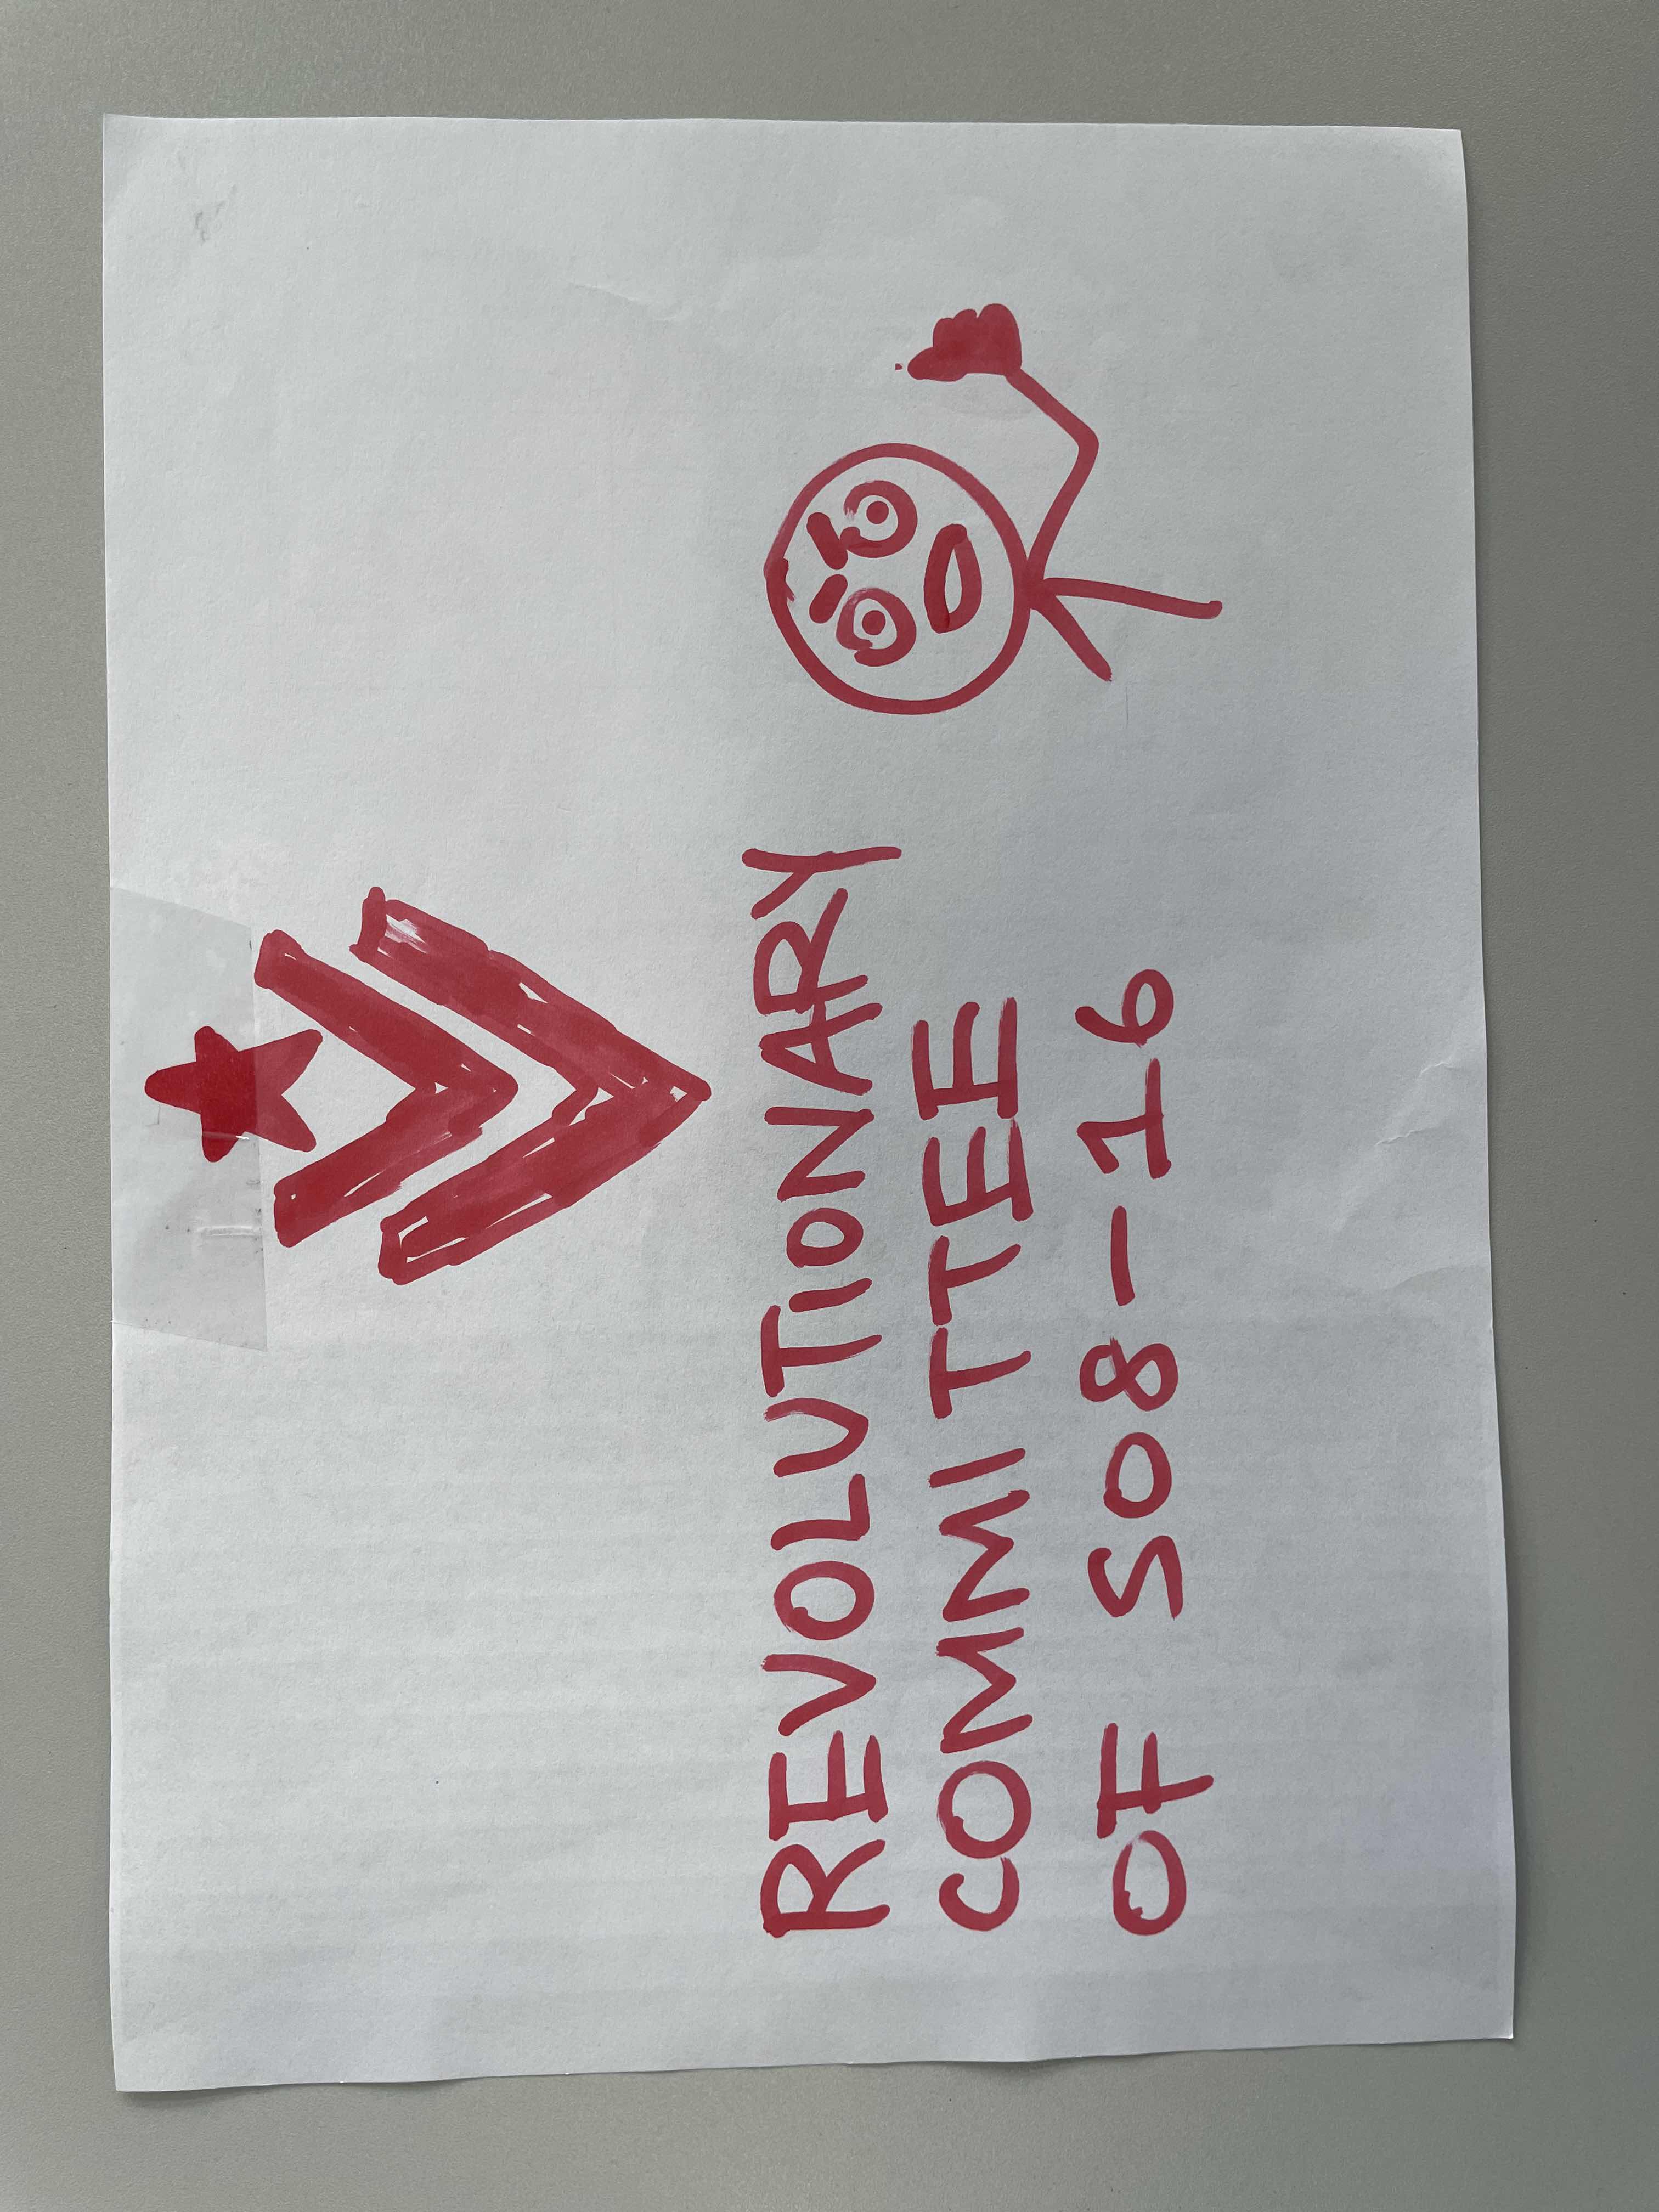 REVOLUTIONARY
COMMITTEE
OF S08-16